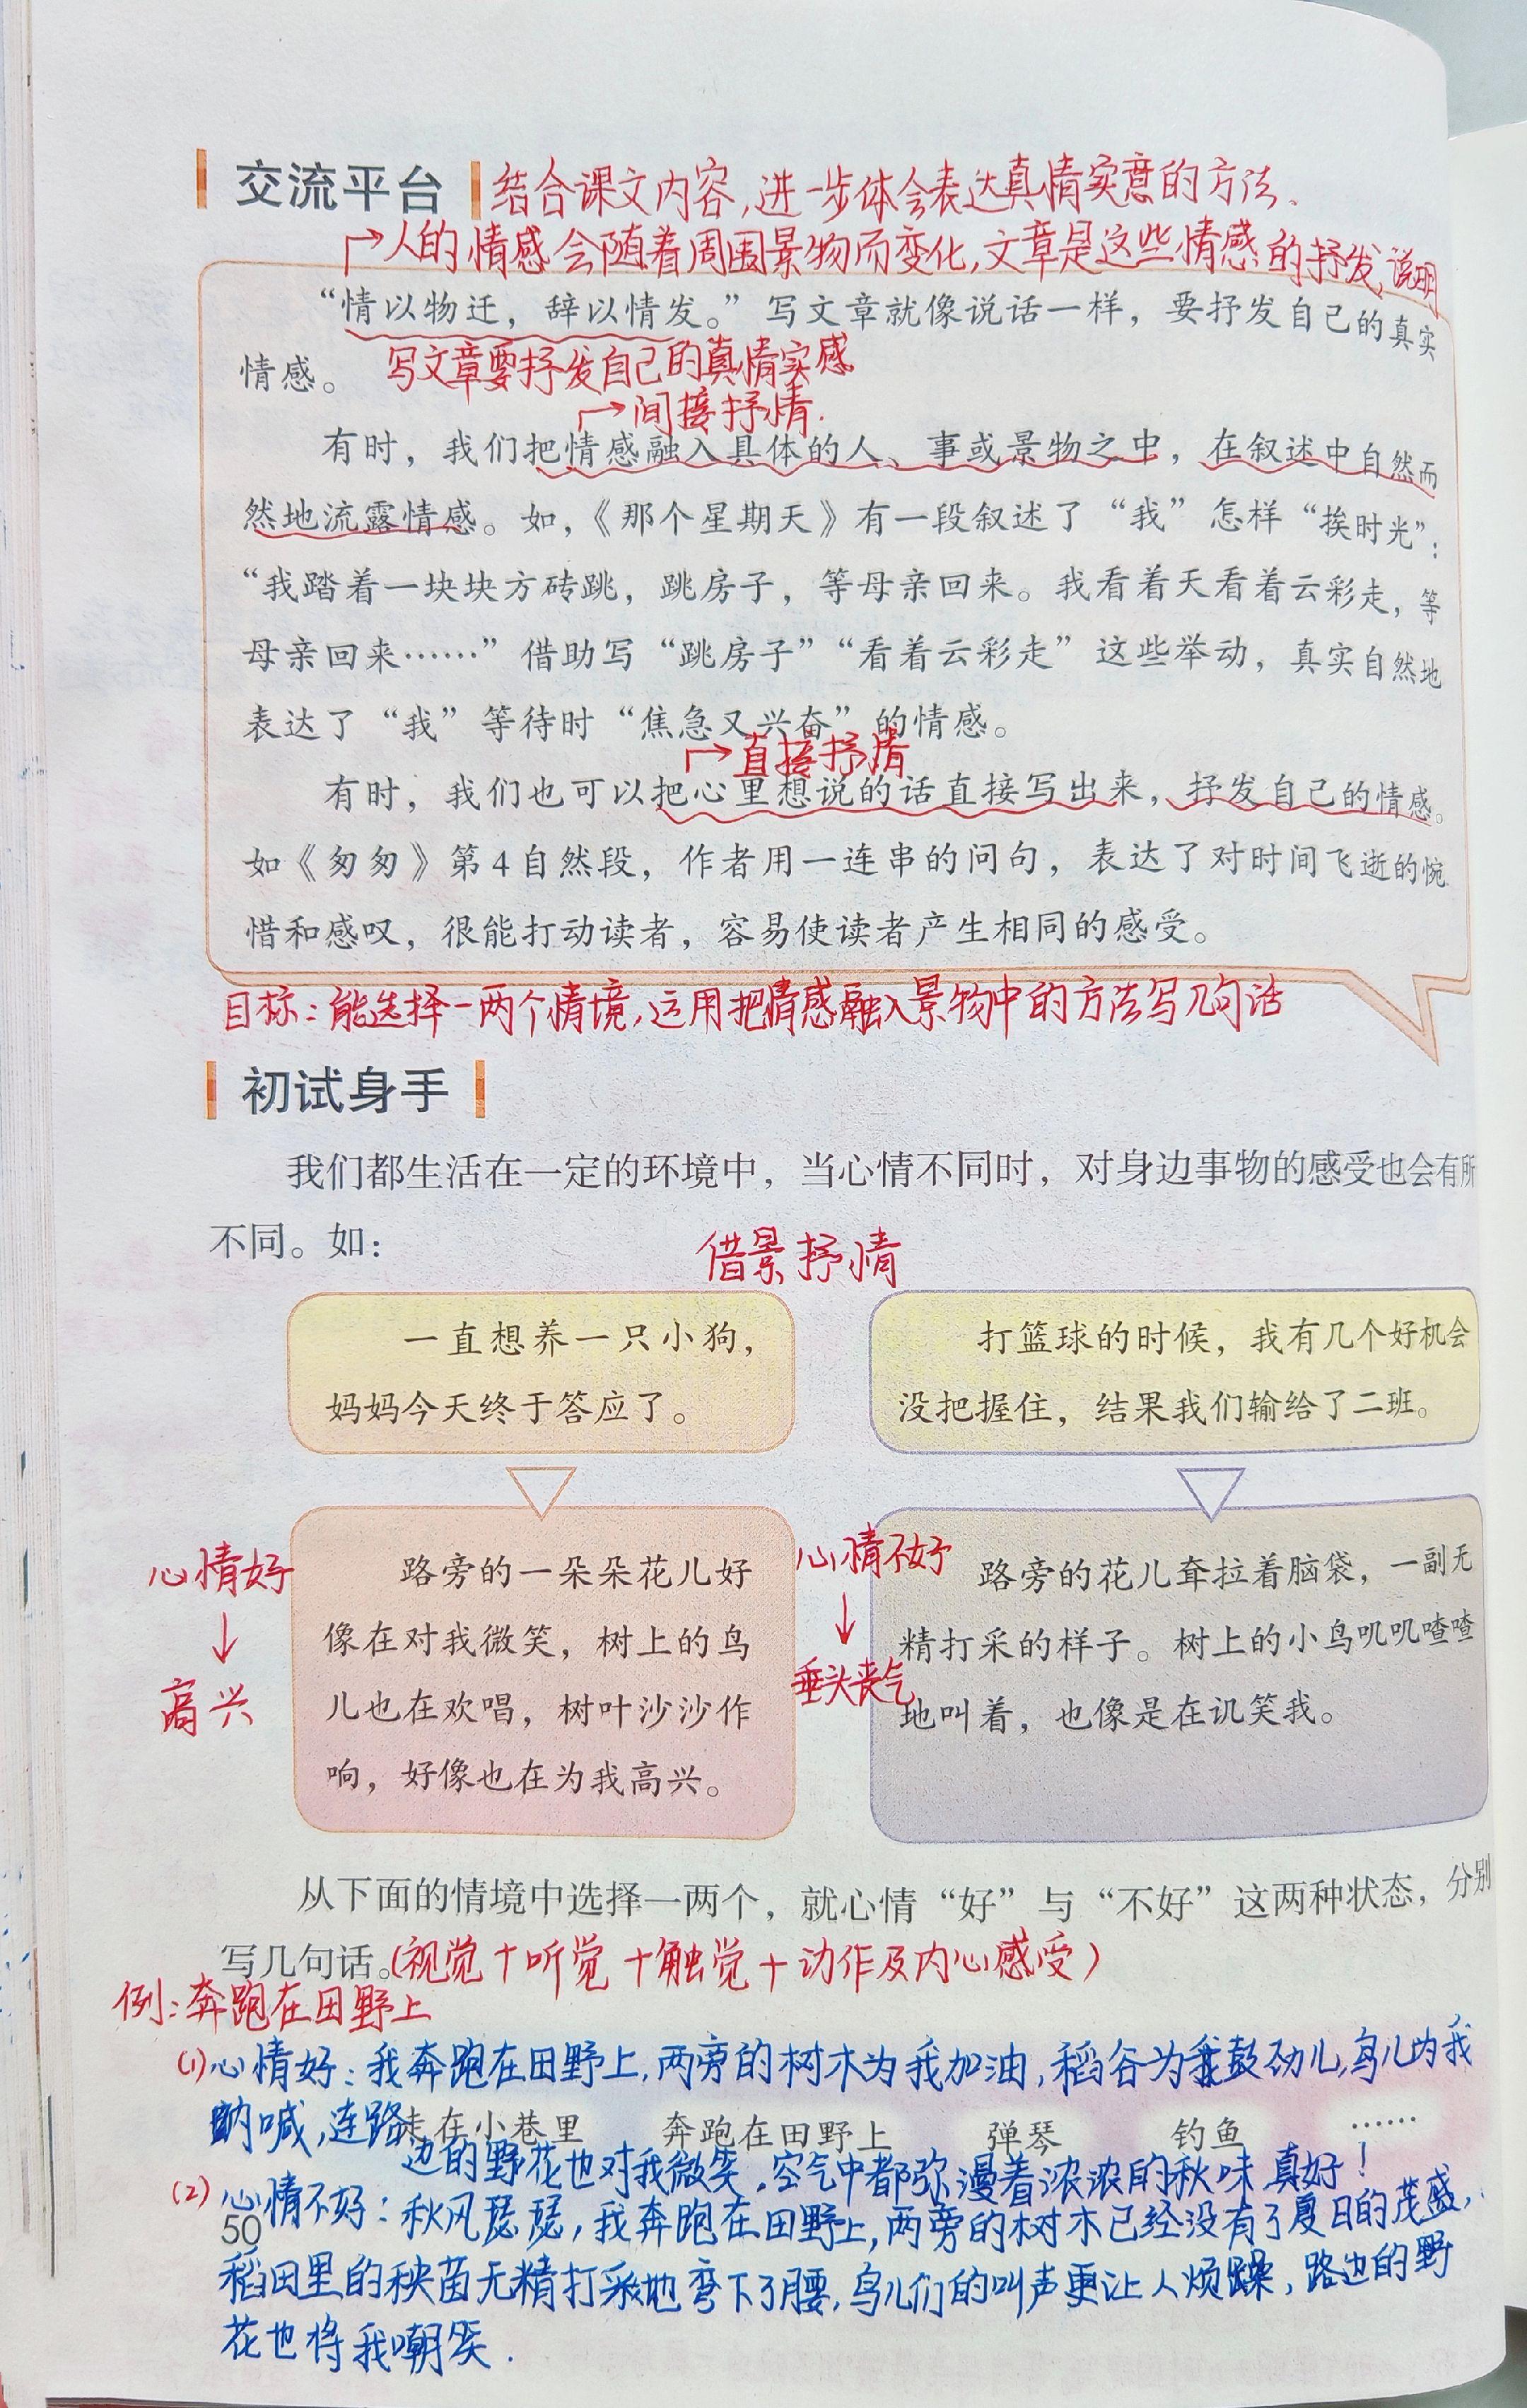 交流平台 结合课文内容,进一步体会表达真情实意的方法.
人的情感会随着周围景物而变化,文章是这些情感的抒发,说明
“情以物迁，辞以情发。”写文章就像说话一样，要抒发自己的真实
情感。 写文章要抒发自己的真情实感
间接抒情.
有时，我们把情感融入具体的人、事或景物之中，在叙述中自然而
然地流露情感。如，《那个星期天》有一段叙述了“我”怎样“挨时光”：
“我踏着一块块方砖跳，跳房子，等母亲回来。我看着天看着云彩走，等
母亲回来……”借助写“跳房子”“看着云彩走”这些举动，真实自然地
表达了“我”等待时“焦急又兴奋”的情感。
直接抒情
有时，我们也可以把心里想说的话直接写出来，抒发自己的情感。
如《匆匆》第4自然段，作者用一连串的问句，表达了对时间飞逝的惋
惜和感叹，很能打动读者，容易使读者产生相同的感受。
目标:能选择一两个情境,运用把情感融入景物中的方法写几句话
初试身手
我们都生活在一定的环境中，当心情不同时，对身边事物的感受也会有所
不同。如：
借景抒情
一直想养一只小狗，
妈妈今天终于答应了。
打篮球的时候，我有几个好机会
没把握住，结果我们输给了二班。
心情好
高兴
路旁的一朵朵花儿好
像在对我微笑，树上的鸟
儿也在欢唱，树叶沙沙作
响，好像也在为我高兴。
心情不好
垂头丧气
路旁的花儿耷拉着脑袋，一副无
精打采的样子。树上的小鸟叽叽喳喳
地叫着，也像是在讥笑我。
从下面的情境中选择一两个，就心情“好”与“不好”这两种状态，分别
写几句话。(视觉+听觉+触觉+动作及内心感受)
例:奔跑在田野上
(1)心情好:我奔跑在田野上,两旁的树木为我加油,稻谷为我鼓劲儿,鸟儿为我
呐喊,连路
走在小巷里 奔跑在田野上 弹琴 钓鱼 ……
边的野花也对我微笑.空气中都弥漫着浓浓的秋味真好!
(2)心情不好:秋风瑟瑟,我奔跑在田野上,两旁的树木已经没有了夏日的茂盛,
50
稻田里的秧苗无精打采地弯下了腰,鸟儿们的叫声更让人烦躁,路边的野
花也将我嘲笑.